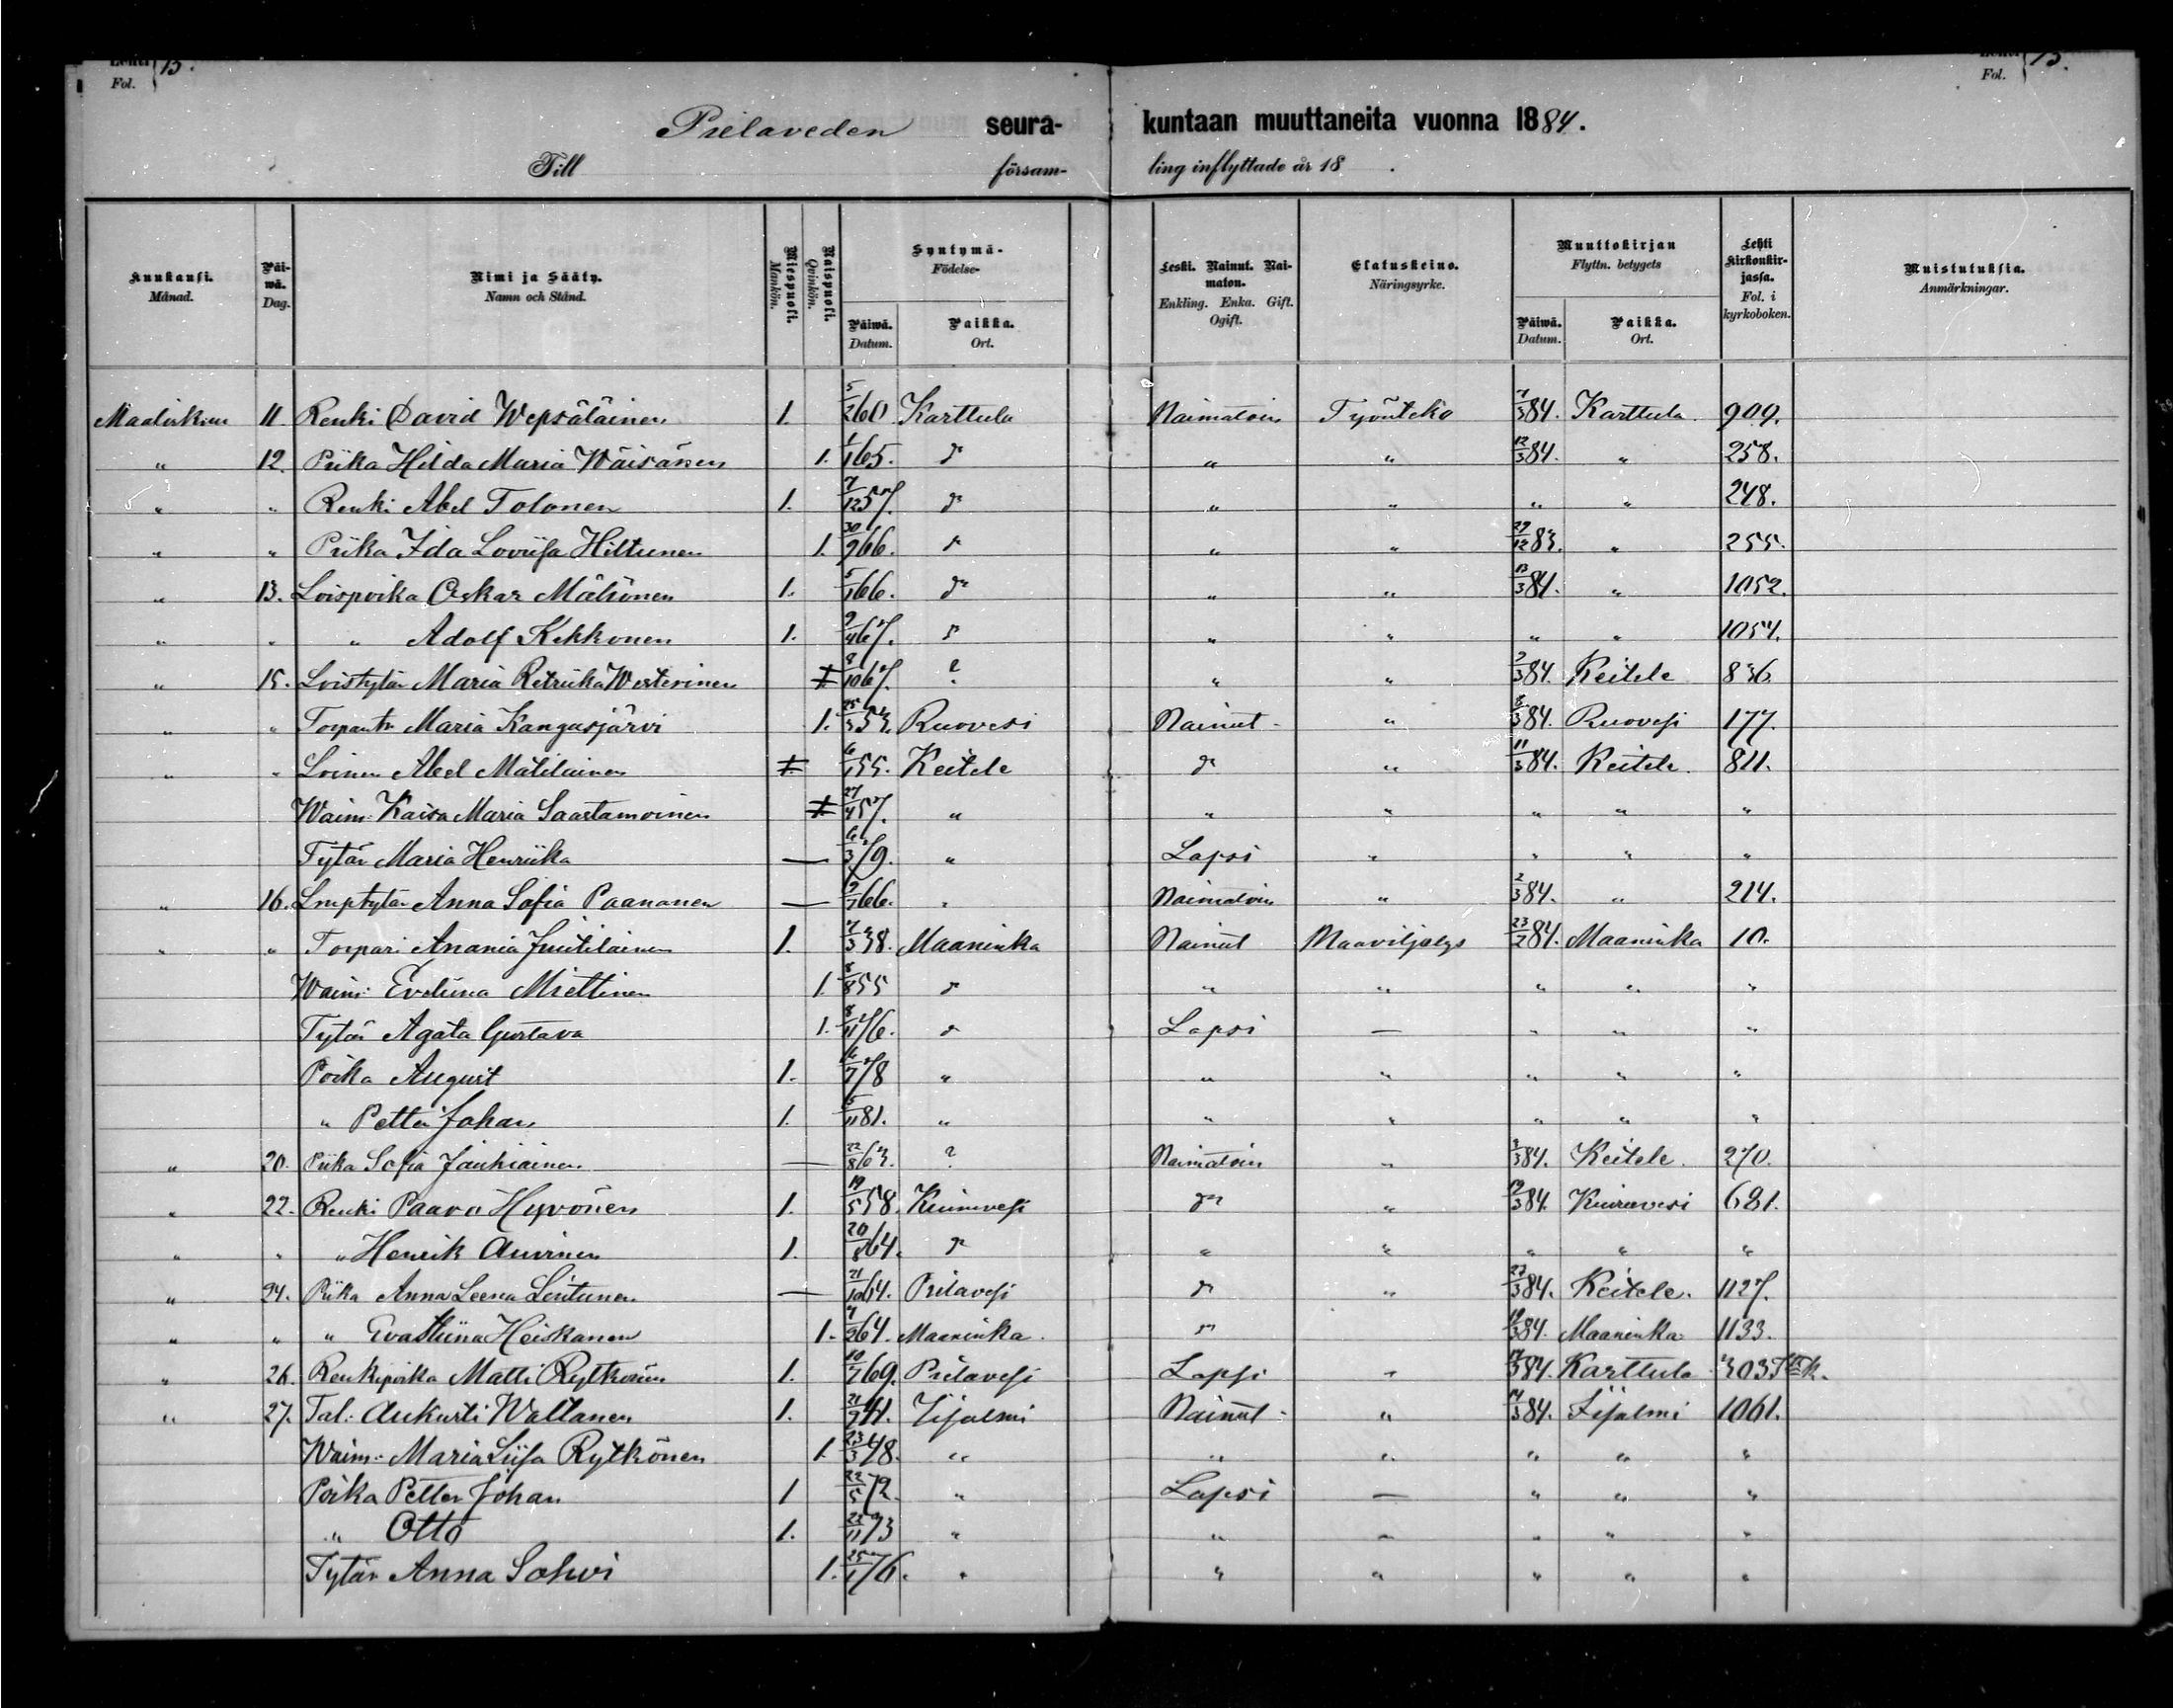 Lehti Fol. 15. Lehti Fol. 15.
Pielaveden seura- kuntaan muuttaneita vuonna 1884.
Till försam- ling inflyttade år 18 .
Kuukausi. Månad. Päiwä. Dag. Nimi ja Sääty. Namn och Stånd. Miespuoli. Mankön. Naispuoli. Qvinkön. Syntymä- Födelse- Päiwä. Datum. Paikka. Ort. Leski. Nainut. Naimaton. Enkling. Enka. Gift. Ogift. Elatuskeino. Näringsyrke. Muuttokirjan Flyttn. betygets Päiwä. Datum. Paikka. Ort. Lehti Kirkonkirjassa. Fol. i kyrkoboken. Muistutuksia. Anmärkningar.
Maaliskuu 11. Renki David Wepsäläinen 1. 5/2 60. Karttula Naimatoin Työnteko 7/3 84. Karttula 909.
" 12. Piika Hilda Maria Wäisänen 1. 1/1 65. d:o " " 12/3 84. " 258.
" " Renki Abel Tolonen 1. 7/12 57. d:o " " " " 248.
" " Piika Ida Loviisa Hiltunen 1. 30/9 66. d:o " " 29/12 83. " 255.
" 13. Loispoika Oskar Mähönen 1. 5/1 66. d:o " " 13/3 84. " 1052.
" " " Adolf Kekkonen 1. 9/4 67. d:o " " " " 1054.
" 15. Loistytär Maria Retriika Westerinen 1. 8/10 67. ? " " 7/3 84. Keitele 836.
" " Torpantr Maria Kangasjärvi 1. 25/3 53. Ruovesi Nainut " 3/3 84. Ruovesi 177.
" " Loinen Abel Matilainen 1. 6/1 55. Keitele d:o " 11/3 84. Keitele 811.
Waim: Kaisa Maria Saastamoinen 1. 27/4 57. " " " " " "
Tytär Maria Henriika — 6/3 79. " Lapsi " " " "
" 16. Lmptytär Anna Sofia Paananen — 9/7 66. " Naimatoin " 2/3 84. " 214.
" " Torpari Anania Juutilainen 1. 7/3 38. Maaninka Nainut Maaviljelys 23/2 84. Maaninka 10.
Waim: Eveliina Miettinen 1. 8/8 55 d:o " " " " "
Tytär Agata Gustava 1. 8/11 76. d:o Lapsi — " " "
Poika August 1. 6/7 78 " " " " " "
" Petter Johan 1. 5/11 81. " " " " " "
" 20. Piika Sofia Jauhiainen — 22/8 63. ? Naimatoin " 3/3 84. Keitele 270.
" 22. Renki Paavo Hyvönen 1. 19/5 58. Kiuruvesi d:o " 19/3 84. Kiuruvesi 681.
" " " Henrik Auvinen 1. 20/8 64. d:o " " " " "
" 24. Piika Anna Leena Lintunen — 21/10 64. Pielavesi d:o " 23/3 84. Keitele. 1127.
" " " Eva Stiina Heiskanen 1. 7/2 64. Maaninka. d:o 18/3 84. Maaninka 1133.
" 26. Renkipoika Matti Rytkönen 1. 10/7 69. Pielavesi Lapsi " 17/3 84. Karttula 303
" 27. Tal: Aukusti Waltanen 1. 21/9 41. Iisalmi Nainut " 14/3 84. Iisalmi 1061.
Waim: Maria Liisa Rytkönen 1. 23/3 48. " " " " " "
Poika Petter Johan 1 22/5 72. " Lapsi — " " "
" Otto 1. 22/11 73 " " " " " "
Tytär Anna Sohvi 1. 25/1 76. " " " " " "